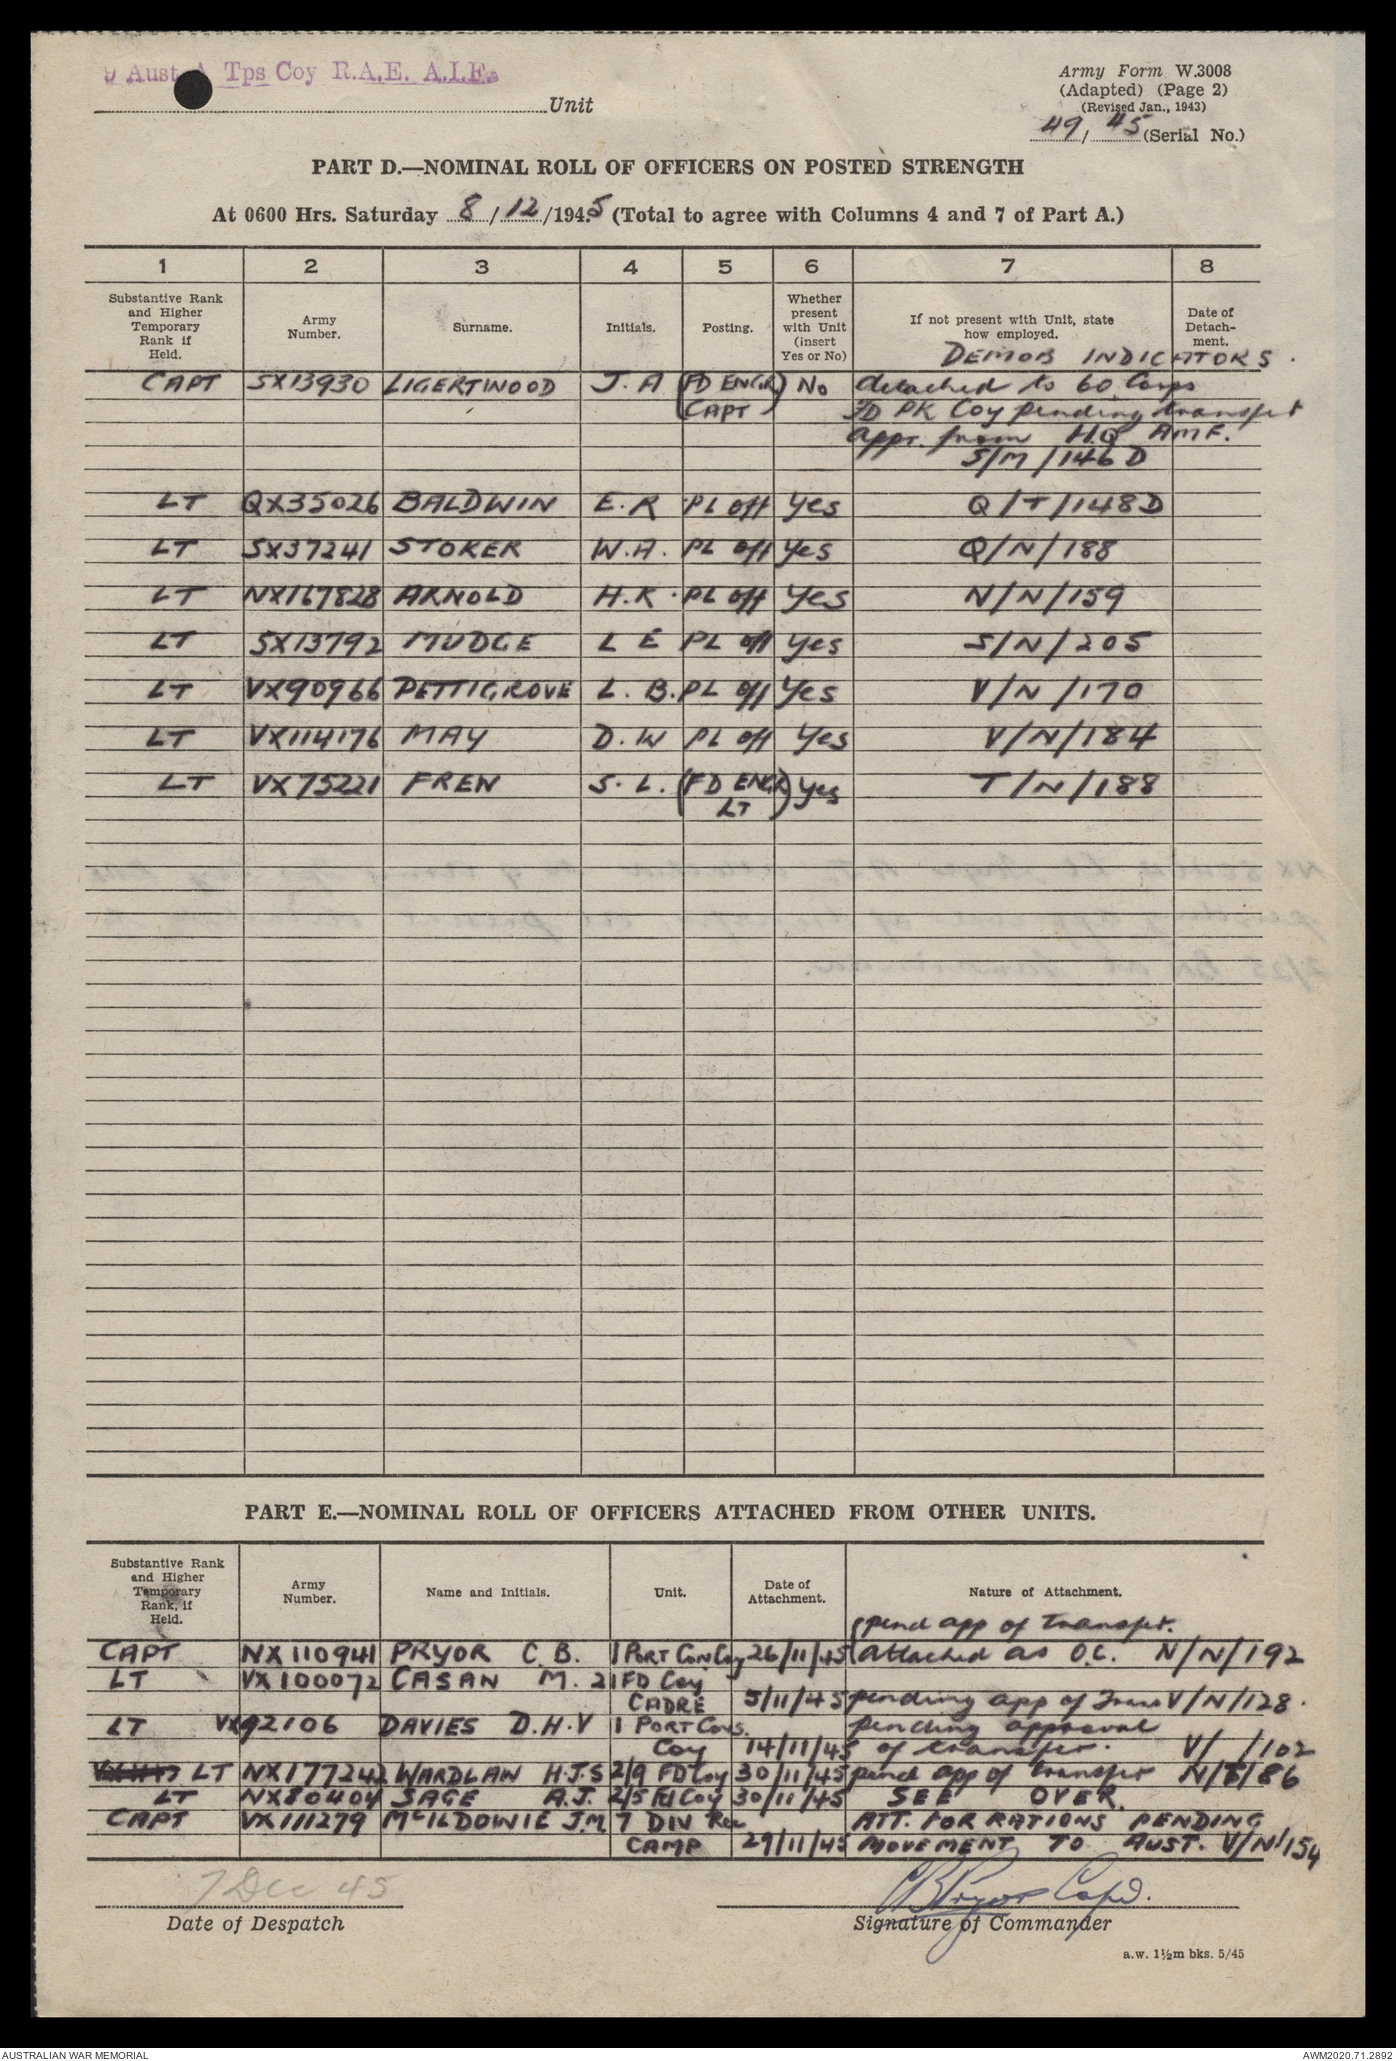 9 Aust A Tps Coy R.A.E. A.I.F.
Unit
Army Form W.3008
(Adapted) (Page 2)
(Revised Jan., 1943)
49/45 (Serial No.)
PART D.—NOMINAL ROLL OF OFFICERS ON POSTED STRENGTH
At 0600 Hrs. Saturday 8/12/1945 (Total to agree with Columns 4 and 7 of Part A.)
1 2 3 4 5 6 7 8
Substantive Rank and Higher Temporary Rank if Held. Army Number. Surname. Initials. Posting. Whether present with Unit (insert Yes or No) If not present with Unit, state how employed. Date of Detachment.
DEMOB INDICATORS.
CAPT SX13930 LIGERTWOOD J. A (FD ENGR) No detached to 60 Corps
CAPT FD PK Coy pending transfer
appt. from H.Q AMF.
S/M/146D
LT QX35026 BALDWIN E. R PL off Yes Q/T/148D
LT SX37241 STOKER W.A. PL off Yes Q/N/188
LT NX167828 ARNOLD H.K. PL off Yes N/N/159
LT SX13792 MUDGE L E PL off Yes S/N/205
LT VX90966 PETTIGROVE L. B. PL off Yes V/N/170
LT VX114176 MAY D. W PL off Yes V/N/184
LT VX75221 FREN S. L. (FD ENGR) Yes T/N/188
LT
PART E.—NOMINAL ROLL OF OFFICERS ATTACHED FROM OTHER UNITS.
Substantive Rank and Higher Temporary Rank, if Held. Army Number. Name and Initials. Unit. Date of Attachment. Nature of Attachment.
(pend app of transfer.
CAPT NX110941 PRYOR C. B. 1 PORT Con Coy 26/11/45 (attached as O.C. N/N/192
LT VX100072 CASAN M. 21 FD Coy
CADRE 5/11/45 pending app of Trans V/N/128.
LT VX92106 DAVIES D.H.V 1 PORT Cons. pending approval
Coy 14/11/45 of transfer. V/ /102
LT NX177242 WARDLAW H.J.S 2/9 FD Coy 30/11/45 pend app of transfer N/T/86
LT NX80404 SAGE A.J. 2/5 Fd Coy 30/11/45 SEE OVER.
CAPT VX111279 McILDOWIE J.M. 7 DIV Rec ATT. FOR RATIONS PENDING
CAMP 29/11/45 MOVEMENT TO AUST. V/N/154
7 Dec 45
Date of Despatch
CB Pryor Capt.
Signature of Commander
a.w. 1½m bks. 5/45
AUSTRALIAN WAR MEMORIAL
AWM2020.71.2892